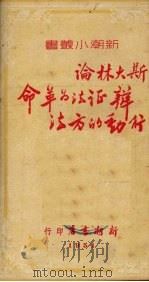 新潮小叢書
斯大林論
辯证法為革命
行動的方法
新潮書店印行